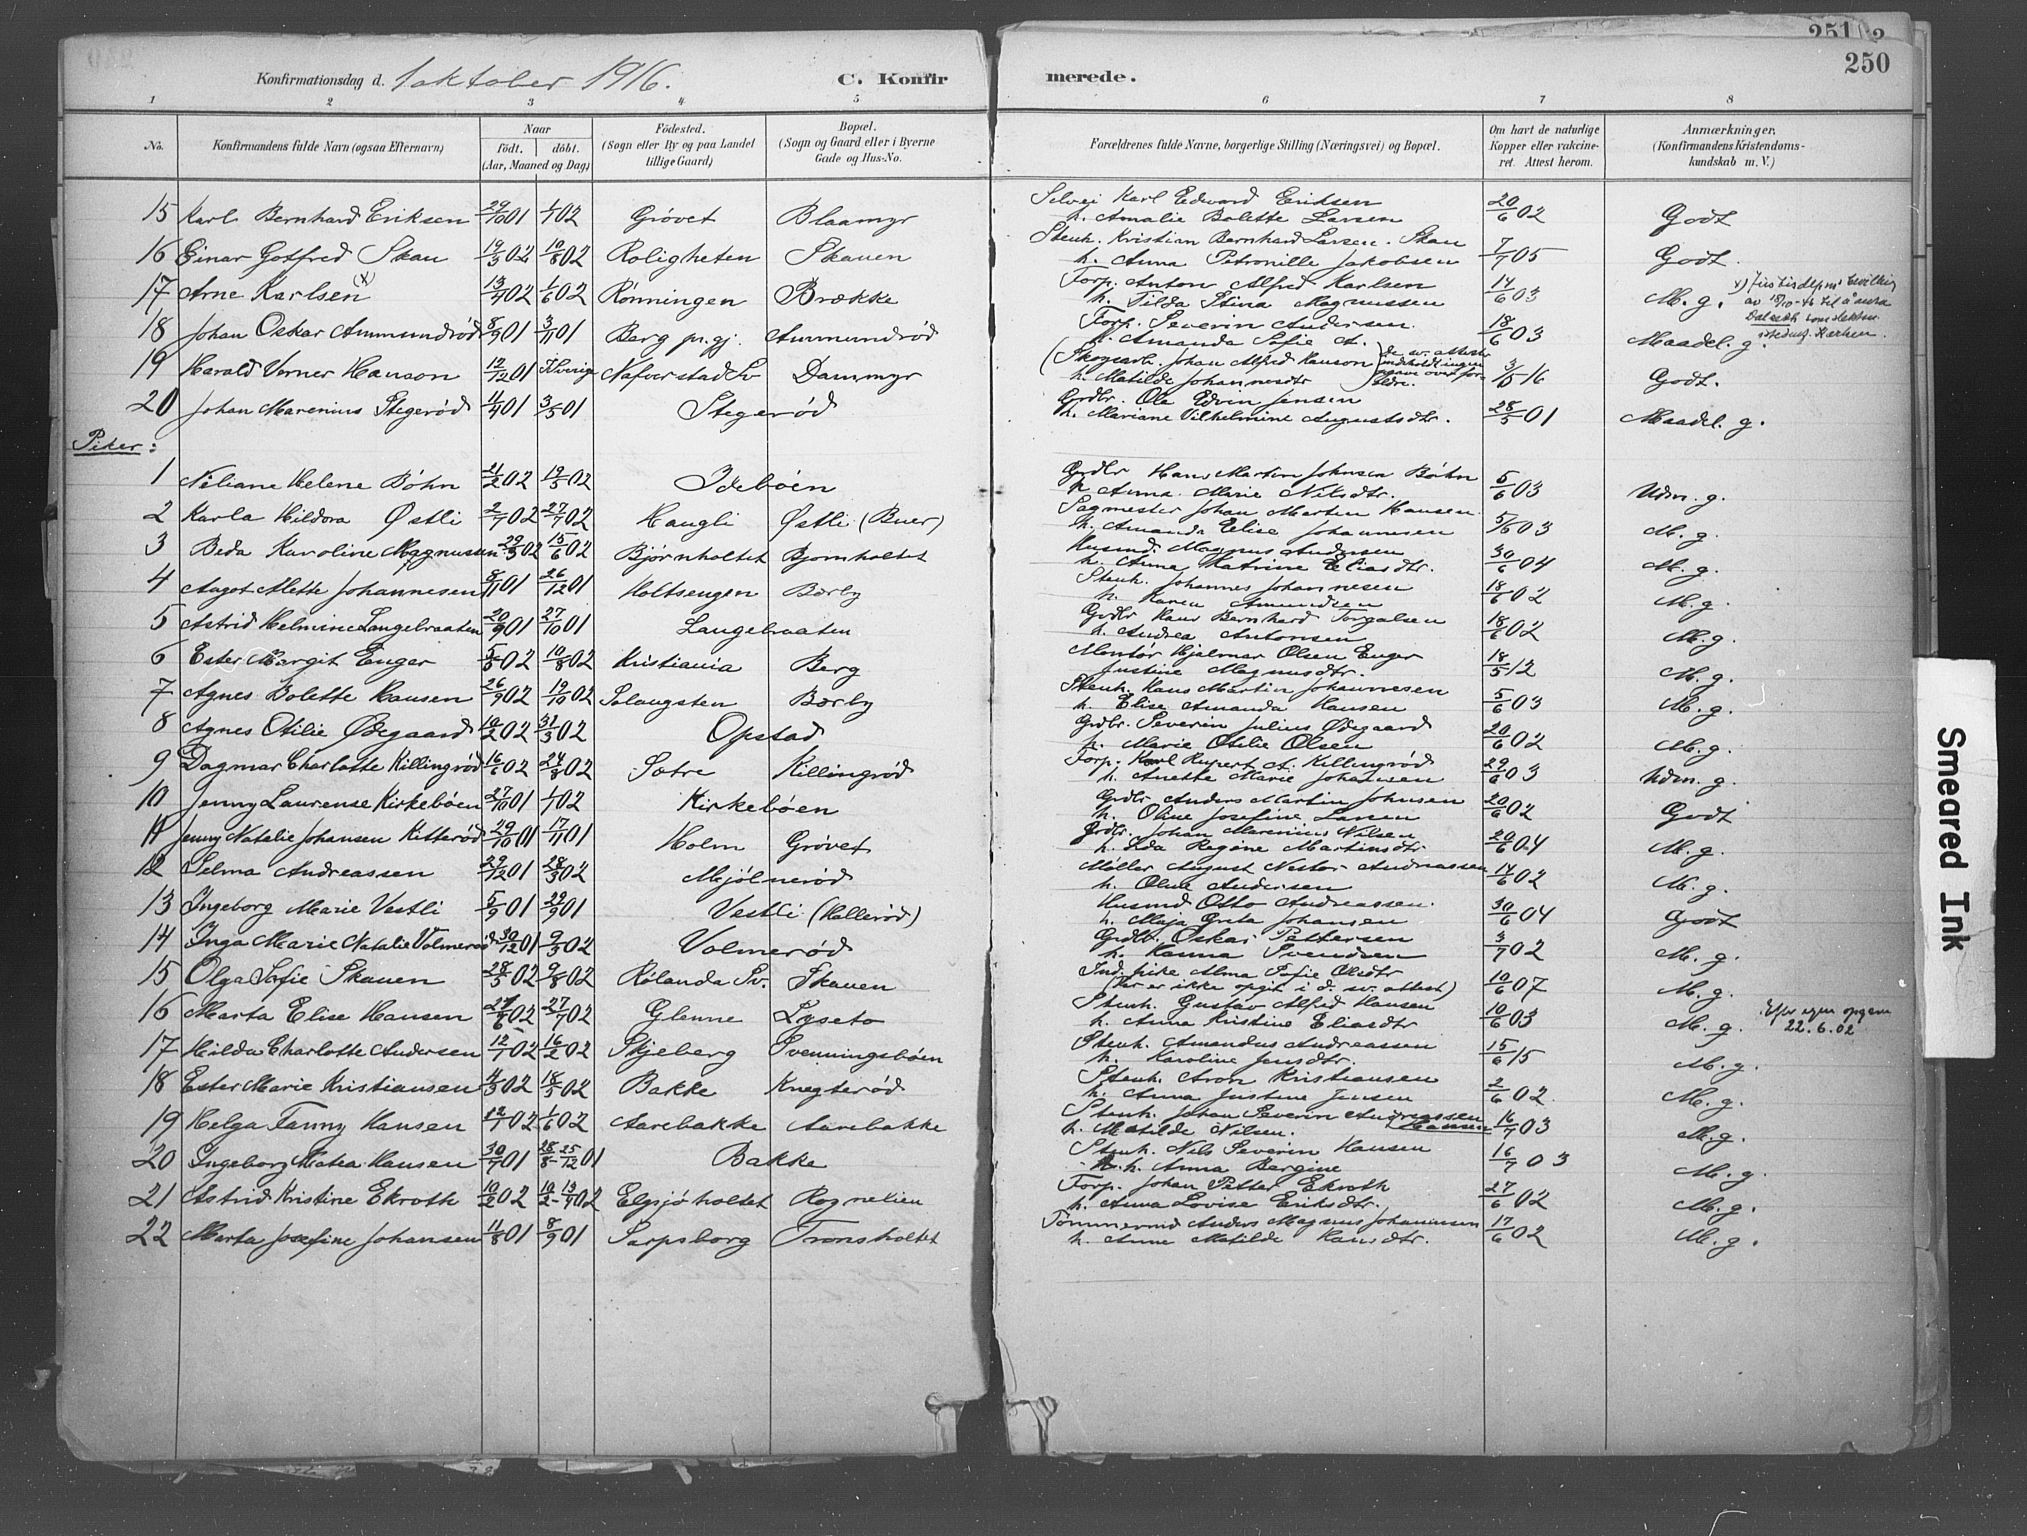 251
250
Konfirmationsdag d. 1 oktober 1916. C. Konfir merede.
1 2 3 4 5 6 7 8
No. Konfirmandens fulde Navn (ogsaa Efternavn) Naar født. døbt. (Aar, Maaned og Dag) Fødested. (Sogn eller By og paa Landet tillige Gaard) Bopæl. (Sogn og Gaard eller i Byerne Gade og Hus-No. Forældrenes fulde Navne, borgerlige Stilling (Næringsvei) og Bopæl. Om havt de naturlige Kopper eller vaccineret. Attest herom. Anmærkninger. (Konfirmandens Kristendomskundskab m. V.)
15 Karl Bernhard Eriksen 29/10 01 1/1 02 Grøvet Blaamyr Selvei Karl Edward Eriksen h. Amalie Bolette Larsen 20/6 02 Godt
16 Einar Gotfred Skau 19/3 02 10/8 02 Roligheten Skauen Stenh. Kristian Bernhard Larsen. Skau h. Anna Petronille Jakobsen 7/7 05 Godt.
17 Arne Karlsen x) 13/4 02 1/6 02 Rønningen Brække Forp. Anton Alfred Karlsen h. Tilda Stina Magnussen 14/6 03 M. g.
18 Johan Oskar Ammundrød 8/9 01 3/11 01 Berg pr.gj. Ammundrød Forp. Severin Andersen. h. Amanda Sofie A. 18/6 03 Maadel. g.
19 Harald Verner Hanson 12/12 01 I Sverige Naverstad Sv Dammyr (Skogsarb. Johan Alfred Hanson h. Matilde Johannesdtr 3/5 16 Godt.
20 Johan Marenius Stegerød 11/4 01 3/5 01 Stegerød Grdbr. Ole Edvin Jensen h. Mariane Vilhelmine Augustsdtr. 28/5 01 Maadel. g.
Piker:
1 Niliane Helene Bøhn 21/2 02 19/5 02 Idebøen Grdbr Hans Martin Johnsen Bøhn h Anna Marie Nilsdtr. 5/6 03 Udm. g.
2 Karla Hildora Østli 2/7 02 27/7 02 Haugli Østli (Buer) Sagmester Johan Martin Hansen. h. Amanda Elise Johannesen 5/6 03 M. g.
3 Beda Karoline Magnussen 29/3 02 15/6 02 Bjørnholtet Bjornholtet Husmd. Magnus Andersen h. Anna Katrine Eliasdtr. 30/6 04 M. g.
4 Aagot Mette Johannesen 8/11 01 26/12 01 Holtsengen Børby Stenh. Johannes Johannesen h. Karen Amundsen 18/6 02 M. g.
5 Astrid Helmine Langebraaten 20/9 01 27/10 01 Langebraaten Grdbr Hans Bernhard Torgalsen h. Andrea Antonsen 18/6 02 M. g.
6 Ester Margit Enger 5/5 02 10/8 02 Kristiania Berg Montør Hjalmar Olsen Enger Justine Magnusdtr. 18/5 12 M. g.
7 Agnes Bolette Hansen 26/9 02 19/10 02 Solaugsten Børby Stenh. Hans Martin Johannesen h. Elise Amanda Hansen 5/6 03 M. g.
8 Agnes Otilie Ødegaard 10/2 02 31/3 02 Opstad Grdbr. Severin Julius Ødegaard h. Marie Otilie Olsen 20/6 02 M. g.
9 Dagmar Charlotte Killingrød 16/6 02 24/8 02 Sætre Killingrød Forp. Karl Rupert A. Killingrød h. Anette Marie Johansen 29/6 03 Udm. g.
10 Jenny Laurense Kirkebøen 27/10 01 1/1 02 Kirkebøen Grdbr Anders Martin Johnsen h. Oline Josefine Larsen 20/6 02 Godt
11 Jenny Natalie Johansen Kitterød 29/10 01 17/11 01 Holm Grøvet Grdbr. Johan Marenius Nilsen h. Ida Regine Martinsdtr 20/6 04 M. g.
12 Selma Andreassen 29/12 01 28/3 02 Mjølnerød Møller August Nestor Andreassen h. Oline Andersen 14/6 02 M. g.
13 Ingeborg Marie Vestli 5/9 01 22/9 01 Vestli (Hallerød) Husmd Otto Andreassen. h. Maja Greta Johansen 30/6 04 Godt
14 Inga Marie Natalie Volmerød 30/12 01 9/3 02 Volmerød Grdbr. Oskar Pettersen h. Hanna Svendsen 3/7 02 M. g.
15 Olga Sofie Skauen 28/5 02 9/8 02 Rølanda Sv. Skauen Ind. pike Alma Sofie Olsdtr (Far er ikke opgit i d. sv. attest) 10/6 07 M. g.
16 Marta Elise Hansen 27/6 02 27/7 02 Glenne Lyseto Stenh. Gustav Alfred Hansen h. Anna Kristine Eliasdtr 10/6 03 M. g. Efter egen opgave 22.6.02
17 Hilda Charlotte Andersen 12/1 02 16/2 02 Skjeberg Svenningsbøen Stenh. Amandus Andreassen h. Karoline Jensdtr. 15/6 15 M. g.
18 Ester Marie Kristiansen 4/3 02 18/5 02 Bakke Knegterød Stenh. Aron Kristiansen h. Anna Justine Jensen 2/6 02. M. g.
19 Helga Fanny Hansen 12/1 02 1/6 02 Aarebakke Aarebakke Stenh. Johan Severin Andreassen (Hansen) h. Matilde Nilsen. 16/7 03 M. g.
20 Ingeborg Matea Hansen 30/7 01 28/8 - 25/12 01 Bakke Stenh. Nils Severin Hansen h. Anna Bergine 16/7 03 M. g.
21 Astrid Kristine Ekroth 10/2 02 10/2 - 13/4 02 Elgsjøholtet Rognelien Forp. Johan Petter Ekroth h. Anna Lovise Eriksdtr. 27/6 02 M. g.
22 Marta Josefine Johansen 11/8 01 8/9 01 Sarpsborg Tronsholtet Tømmermd Anders Magnus Johannesen h. Anne Matilde Hansdtr. 17/6 02 M. g.
Smeared Ink